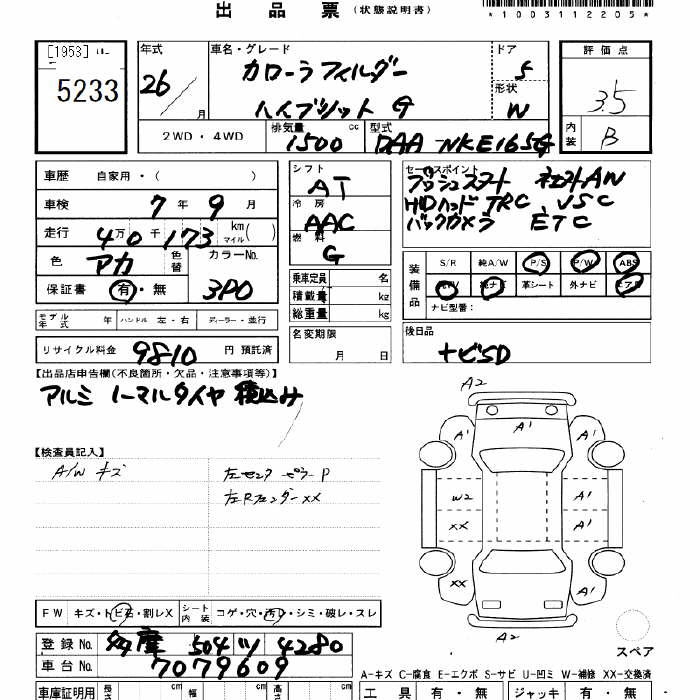 出品票 (状態説明書)
*1003112205*
[1953]
5233
年式
26/
月
車名・グレード
カローラフィルダー
ハイブリット G
ドア
5
形状
W
評価点
3.5
内装
B
2WD・4WD
排気量 1500 cc
型式 DAA-NKE165G
車歴 自家用・( )
車検 7年 9月
走行 4万0千173 km マイル( )
色 アカ 色替 カラーNo. 3P0
保証書 有・無
シフト AT
冷房 AAC
燃料 G
セールスポイント
プッシュスタート
HIDヘッド TRC VSC
バックカメラ ETC
乗車定員 名
積載量 kg
総重量 kg
装備品
S/R 純A/W P/S P/W ABS
純TV 純ナビ 革シート 外ナビ エアB
ナビ型番:
モデル年式 年 ハンドル 左・右 ディーラー・並行
名変期限 月 日
後日品
ナビSD
リサイクル料金 9810 円 預託済
【出品店申告欄(不良箇所・欠品・注意事項等)】
アルミ ノーマルタイヤ 積込み
【検査員記入】
A/W キズ
左センターピラーP
左Rフェンダー××
A2
A1 A1 A1
W2 A1
×× A1
×× A1
A2
スペア
FW キズ・トビ石・割レX シート内装 コゲ・穴・汚レ・シミ・破レ・スレ
登録No. 多摩 504 ツ 4280
車台No. 7079609
A-キズ C-腐食 E-エクボ S-サビ U-凹ミ W-補修 XX-交換済
車庫証明用 長さ cm 幅 cm 高さ cm
工具 有・無 ジャッキ 有・無